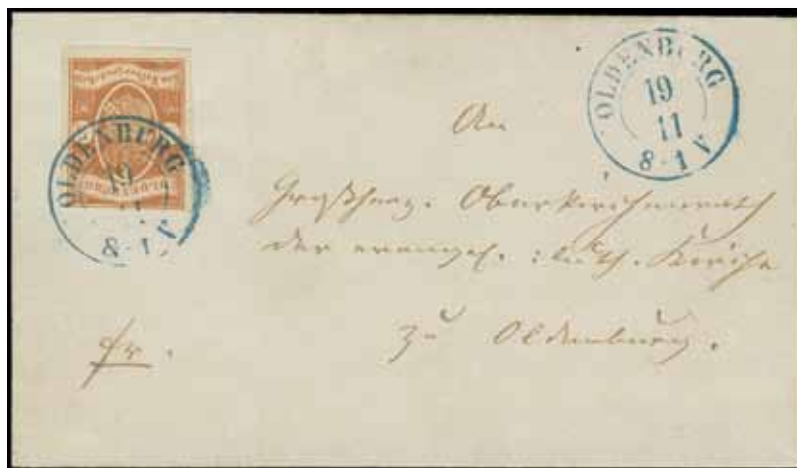 OLDENBURG
19
11
8-1 V
OLDENBURG
19
11
8-1 V
An
Großherz. Oberkirchenrath
der evangel. luth. Kirche
zu Oldenburg.
fr.